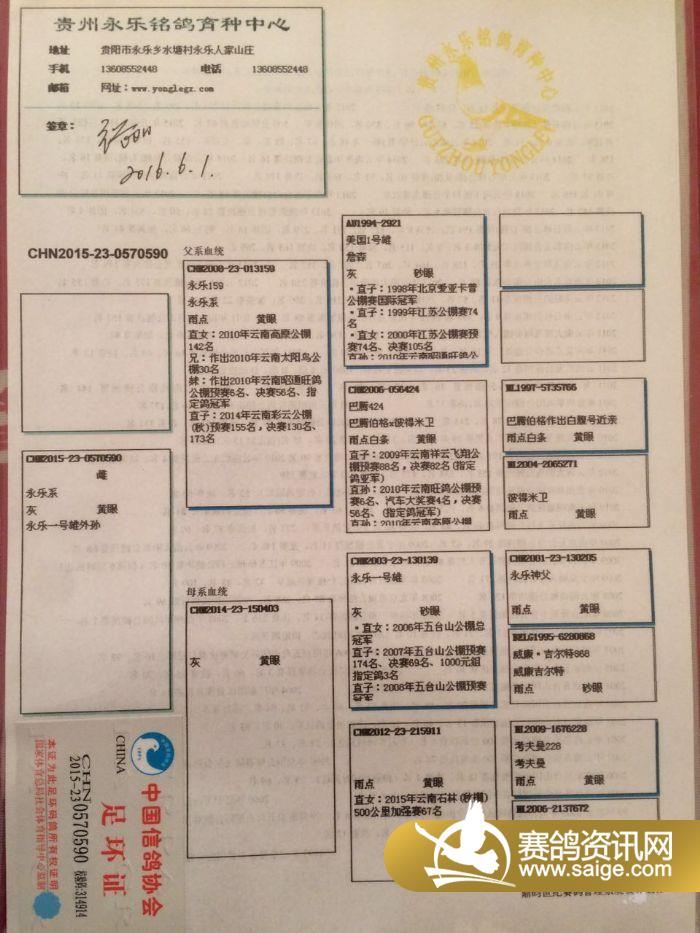 贵州永乐铭鸽育种中心
地址 贵阳市永乐乡水塘村永乐人家山庄
手机 13608552448 电话 13608552448
邮箱 网址：www.yonglegz.com
签章：
2016.6.1.
贵州永乐铭鸽育种中心
GUIZHOU YONGLE
CHN2015-23-0570590
CHN2015-23-0570590
雌
永乐系
灰 黄眼
永乐一号雄外孙
父系血统
CHN2008-23-013159
永乐159
永乐系
雨点 黄眼
直女：2010年云南高原公棚
142名
兄：作出2010年云南太阳鸟公
棚30名
妹：作出2010年云南昭通旺鸽
公棚预赛6名、决赛56名、指
定鸽冠军
直子：2014年云南彩云公棚
(秋)预赛155名，决赛130名、
173名
母系血统
CHN2014-23-150403
灰 黄眼
AU1994-2921
美国1号雄
詹森
灰 砂眼
·直子：1998年北京爱亚卡普
公棚赛国际冠军
·直子：1999年江苏公棚赛74
名
·直女：2000年江苏公棚赛预
赛74名、决赛105名
直孙：2010年云南昭通旺鸽公
CHN2006-056424
巴腾424
巴腾伯格x彼得米卫
雨点白条 黄眼
直子：2009年云南祥云飞翔公
棚预赛88名，决赛82名(指定
鸽亚军)
直孙：2010年云南旺鸽公棚预
赛6名、汽车大奖赛4名，决赛
56名、(指定鸽冠军)
直孙：2010年云南高原公棚
CHN2003-23-130139
永乐一号雄
灰 砂眼
·直女：2006年五台山公棚总
冠军
直子：2007年五台山公棚预赛
174名、决赛69名、1000元组
指定鸽3名
直子：2008年五台山公棚预赛
冠军
CHN2012-23-215911
雨点 黄眼
直女：2015年云南石林(秋棚)
500公里加强赛67名
NL1997-5735766
巴腾伯格作出白腹号近亲
雨点白条 黄眼
NL2004-2065271
彼得米卫
雨点 黄眼
CHN2001-23-130205
永乐神父
雨点 黄眼
BELG1995-6280868
威廉·吉尔特868
威廉吉尔特
雨点 砂眼
NL2009-1676228
考夫曼228
考夫曼
雨点 黄眼
NL2006-2137672
中国信鸽协会
足环证
CHINA
CHN
2015-23-0570590
校验码:314914
本证为此足环鸽所有权证明
国家体育总局社会体育指导中心监制
赛鸽资讯网
www.saige.com